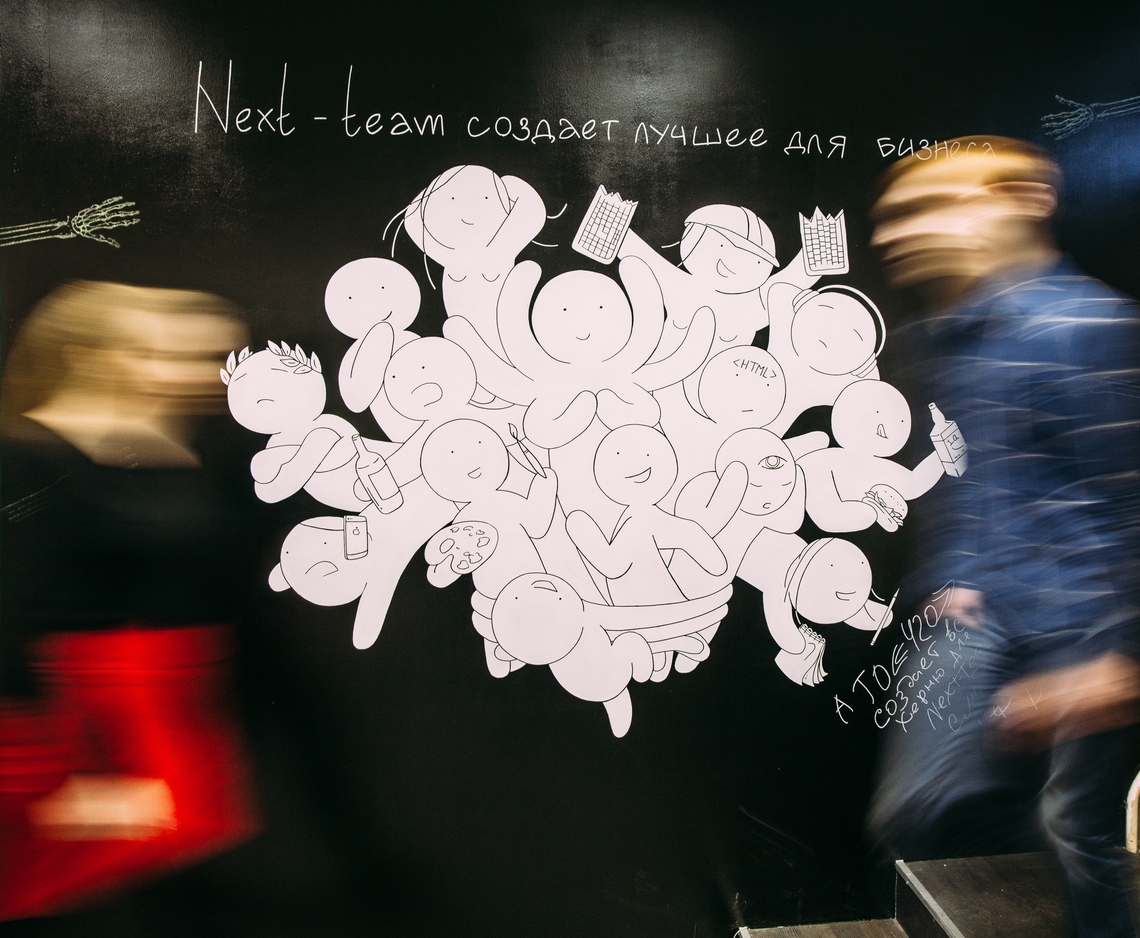 Next-team создает лучшее для бизнеса
<HTML>
А
создает
херню для
Next-